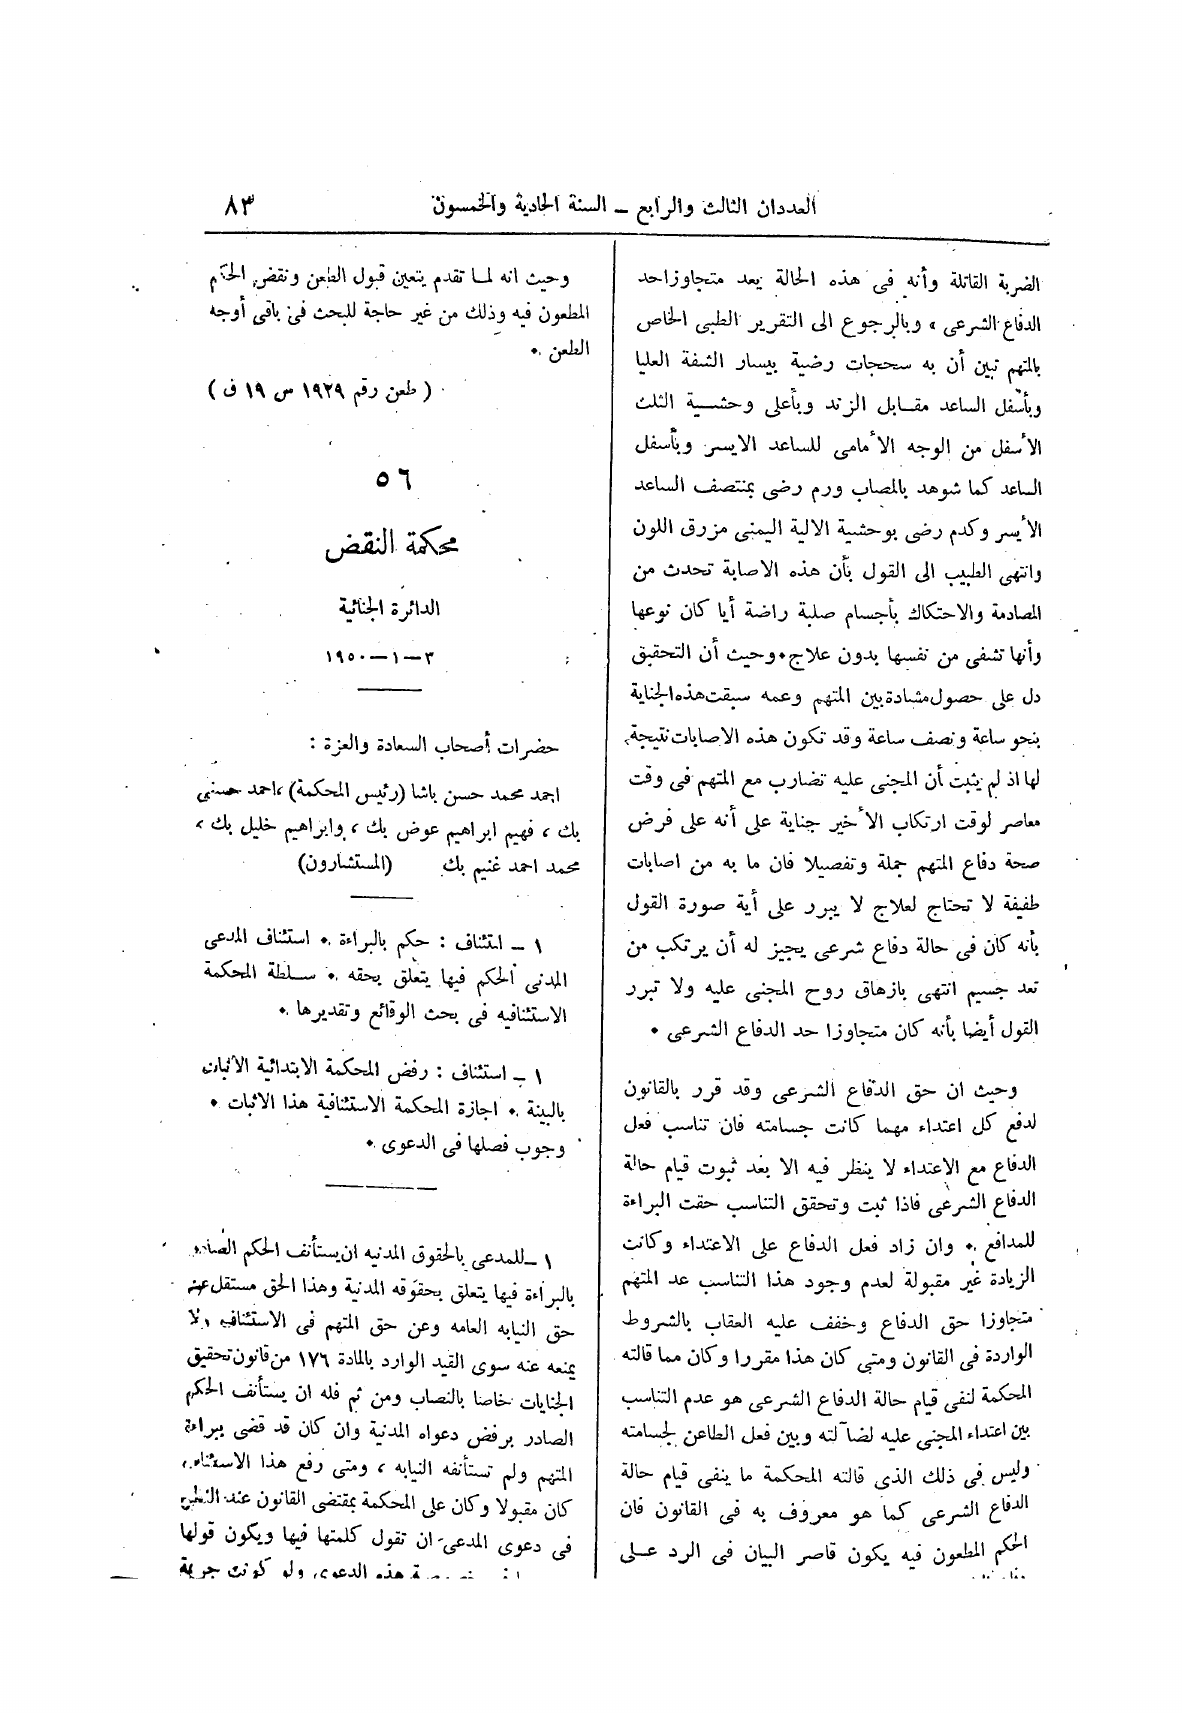 العددان الثالث والرابع – السنة الحادية والخمسون
٨٣
الضربة القاتلة وأنه فى هذه الحالة يعد متجاوزا حد
الدفاع الشرعى ، وبالرجوع الى التقرير الطبى الخاص
بالمتهم تبين أن به سحجات رضية بيسار الشفة العليا
وبأسفل الساعد مقابل الزند وبأعلى وحشية الثلث
الأسفل من الوجه الأمامى للساعد الايسر وبأسفل
الساعد كما شوهد بالمصاب ورم رضى بمنتصف الساعد
الأيسر وكدم رضى بوحشية الالية اليمنى مزرق اللون
وانتهى الطبيب الى القول بأن هذه الاصابة تحدث من
المصادمة والاحتكاك بأجسام صلبة راضة أيا كان نوعها
وأنها تشفى من نفسها بدون علاج • وحيث أن التحقيق
دل على حصول مشادة بين المتهم وعمه سبقت هذه الجناية
بنحو ساعة ونصف ساعة وقد تكون هذه الاصابات نتيجة
لها اذ لم يثبت أن المجنى عليه تضارب مع المتهم فى وقت
معاصر لوقت ارتكاب الأخير جناية على أنه على فرض
صحة دفاع المتهم جملة وتفصيلا فان ما به من اصابات
طفيفة لا تحتاج لعلاج لا يبرر على أية صورة القول
بأنه كان فى حالة دفاع شرعى يجيز له أن يرتكب من
تعد جسيم انتهى بازهاق روح المجنى عليه ولا تبرر
القول أيضا بأنه كان متجاوزا حد الدفاع الشرعى •
وحيث ان حق الدفاع الشرعى وقد قرر بالقانون
لدفع كل اعتداء مهما كانت جسامته فان تناسب فعل
الدفاع مع الاعتداء لا ينظر فيه الا بعد ثبوت قيام حالة
الدفاع الشرعى فاذا ثبت وتحقق التناسب حقت البراءة
للمدافع • وان زاد فعل الدفاع على الاعتداء وكانت
الزيادة غير مقبولة لعدم وجود هذا التناسب عد المتهم
متجاوزا حق الدفاع وخفف عليه العقاب بالشروط
الواردة فى القانون ومتى كان هذا مقررا وكان مما قالته
المحكمة لنفى قيام حالة الدفاع الشرعى هو عدم التناسب
بين اعتداء المجنى عليه لضآلته وبين فعل الطاعن لجسامته
وليس فى ذلك الذى قالته المحكمة ما ينفى قيام حالة
الدفاع الشرعى كما هو معروف به فى القانون فان
الحكم المطعون فيه يكون قاصر البيان فى الرد على
وحيث انه لما تقدم يتعين قبول الطعن ونقض الحكم
المطعون فيه وذلك من غير حاجة للبحث فى باقى أوجه
الطعن •
( طعن رقم ١٩٢٩ س ١٩ ق )
٥٦
محكمة النقض
الدائرة الجنائية
٣–١–١٩٥٠
حضرات أصحاب السعادة والعزة :
احمد محمد حسن باشا (رئيس المحكمة) ، احمد حسنى
بك ، فهيم ابراهيم عوض بك ، وابراهيم خليل بك ،
محمد احمد غنيم بك (المستشارون)
١ – استئناف : حكم بالبراءة • استئناف المدعى
المدنى الحكم فيها يتعلق بحقه • سلطة المحكمة
الاستئنافيه فى بحث الوقائع وتقديرها •
١ – استئناف : رفض المحكمة الابتدائية الاثبات
بالبينة • اجازة المحكمة الاستئنافية هذا الاثبات •
وجوب فصلها فى الدعوى •
١ – للمدعى بالحقوق المدنيه ان يستأنف الحكم الصادر
بالبراءة فيها يتعلق بحقوقه المدنية وهذا الحق مستقل عن
حق النيابه العامه وعن حق المتهم فى الاستئناف ولا
يمنعه عنه سوى القيد الوارد بالمادة ١٧٦ من قانون تحقيق
الجنايات خاصا بالنصاب ومن ثم فله ان يستأنف الحكم
الصادر برفض دعواه المدنية وان كان قد قضى ببراءة
المتهم ولم تستأنفه النيابه ، ومتى رفع هذا الاستئناف
كان مقبولا وكان على المحكمة بمقتضى القانون عند النظر
فى دعوى المدعى ان تقول كلمتها فيها ويكون قولها
هذه الدعوى ولو كونت جريمة